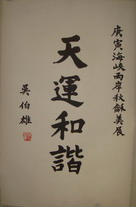 庚寅海峽兩岸秋龢美展
天運和諧
吳伯雄